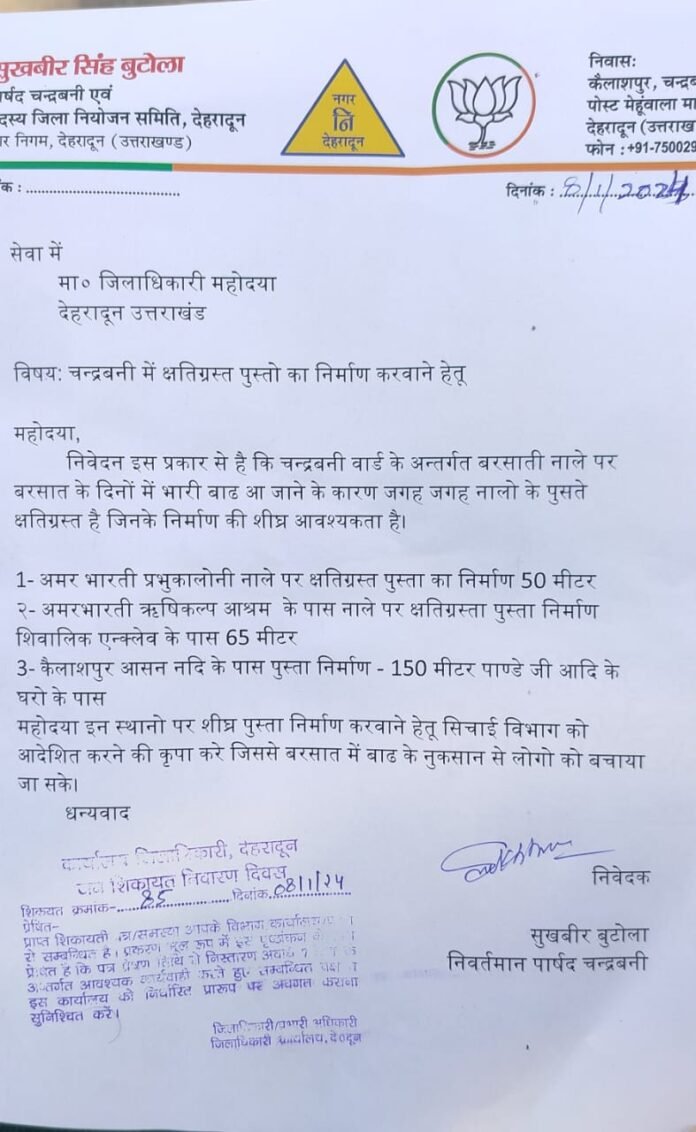 सुखबीर सिंह बुटोला
पार्षद चन्द्रबनी एवं
सदस्य जिला नियोजन समिति, देहरादून
नगर निगम, देहरादून (उत्तराखण्ड)
नगर
नि
देहरादून
निवासः
कैलाशपुर, चन्द्रब
पोस्ट मेहूंवाला मा
देहरादून (उत्तराख
फोन :+91-750029
क : ....................................
दिनांक : 8/1/2024
सेवा में
मा० जिलाधिकारी महोदया
देहरादून उत्तराखंड
विषय: चन्द्रबनी में क्षतिग्रस्त पुस्तो का निर्माण करवाने हेतू
महोदया,
निवेदन इस प्रकार से है कि चन्द्रबनी वार्ड के अन्तर्गत बरसाती नाले पर
बरसात के दिनों में भारी बाढ आ जाने के कारण जगह जगह नालो के पुसते
क्षतिग्रस्त है जिनके निर्माण की शीघ्र आवश्यकता है।
1- अमर भारती प्रभुकालोनी नाले पर क्षतिग्रस्त पुस्ता का निर्माण 50 मीटर
२- अमरभारती ऋषिकल्प आश्रम के पास नाले पर क्षतिग्रस्ता पुस्ता निर्माण
शिवालिक एन्क्लेव के पास 65 मीटर
3- कैलाशपुर आसन नदि के पास पुस्ता निर्माण - 150 मीटर पाण्डे जी आदि के
घरो के पास
महोदया इन स्थानो पर शीघ्र पुस्ता निर्माण करवाने हेतू सिचाई विभाग को
आदेशित करने की कृपा करे जिससे बरसात में बाढ के नुकसान से लोगो को बचाया
जा सके।
धन्यवाद
कार्यालय जिलाधिकारी, देहरादून
जन शिकायत निवारण दिवस
शिकायत क्रमांक-........85........दिनांक.08/1/24
प्रेषित-
प्राप्त शिकायती पत्र/समस्या आपके विभाग कार्यालय
से सम्बन्धित है। प्रकरण मूल रूप में इस
प्रेषित है कि पत्र प्रेषण तिथि से निस्तारण अवधि
अन्तर्गत आवश्यक कार्यवाही करते हुए सम्बन्धित पक्ष
इस कार्यालय को निर्धारित प्रारूप पर अवगत कराना
सुनिश्चित करें।
जिलाधिकारी/प्रभारी अधिकारी
जिलाधिकारी कार्यालय, दे०दून
निवेदक
सुखबीर बुटोला
निवर्तमान पार्षद चन्द्रबनी